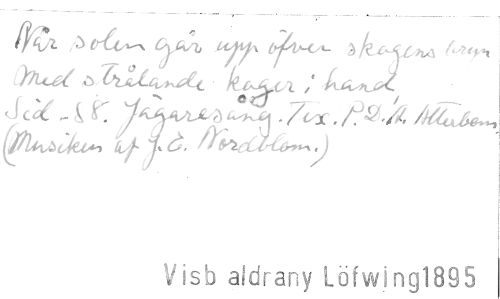 När solen går upp öfver skogens bryn
Med strålande kager i hand
Sid - 58. Jägaresång. Tex. P. D. A. Atterbom.
(Musiken af J. E. Nordblom.)
Visb aldrany Löfwing1895